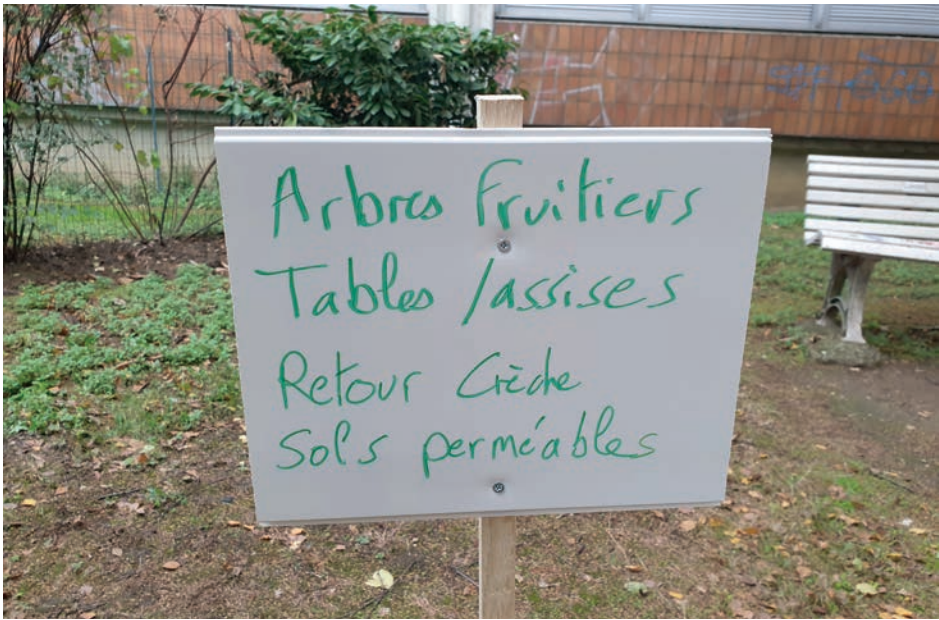 Arbres Fruitiers
Tables /assises
Retour Crèche
Sols perméables